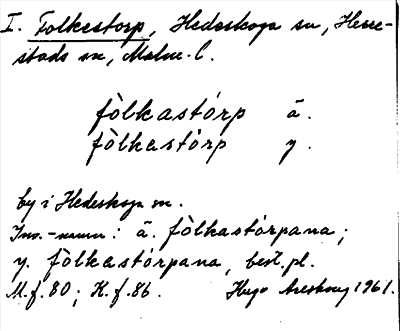 I. Folkestorp, Hedeskoga sn, Herre-
stads hd, Malm. l.
fòlkastórp ä.
fòlkastórp y.
by i Hedeskoga sn.
Inv.-namn: ä. fòlkastórpana;
y. fòlkastórpana, best. pl.
M. f. 80; K. f. 86. Hugo Areskoug 1961.